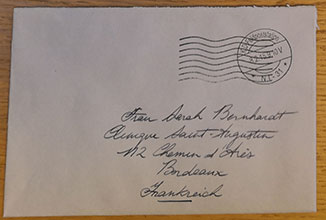 N.L-31
Frau Sarah Bernhardt
Clinique Saint-Augustin
112 Chemin d'Arès
Bordeaux
Frankreich